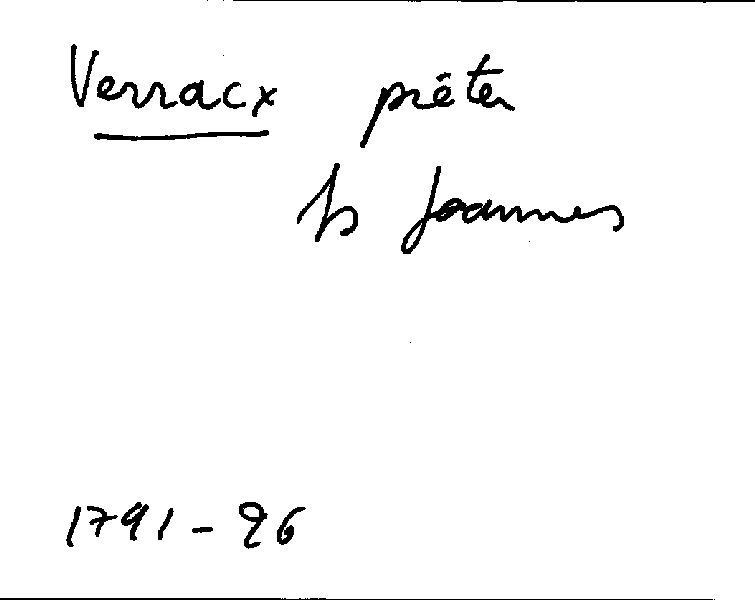 Verracx piêter
Js Joannes
1791 - 96